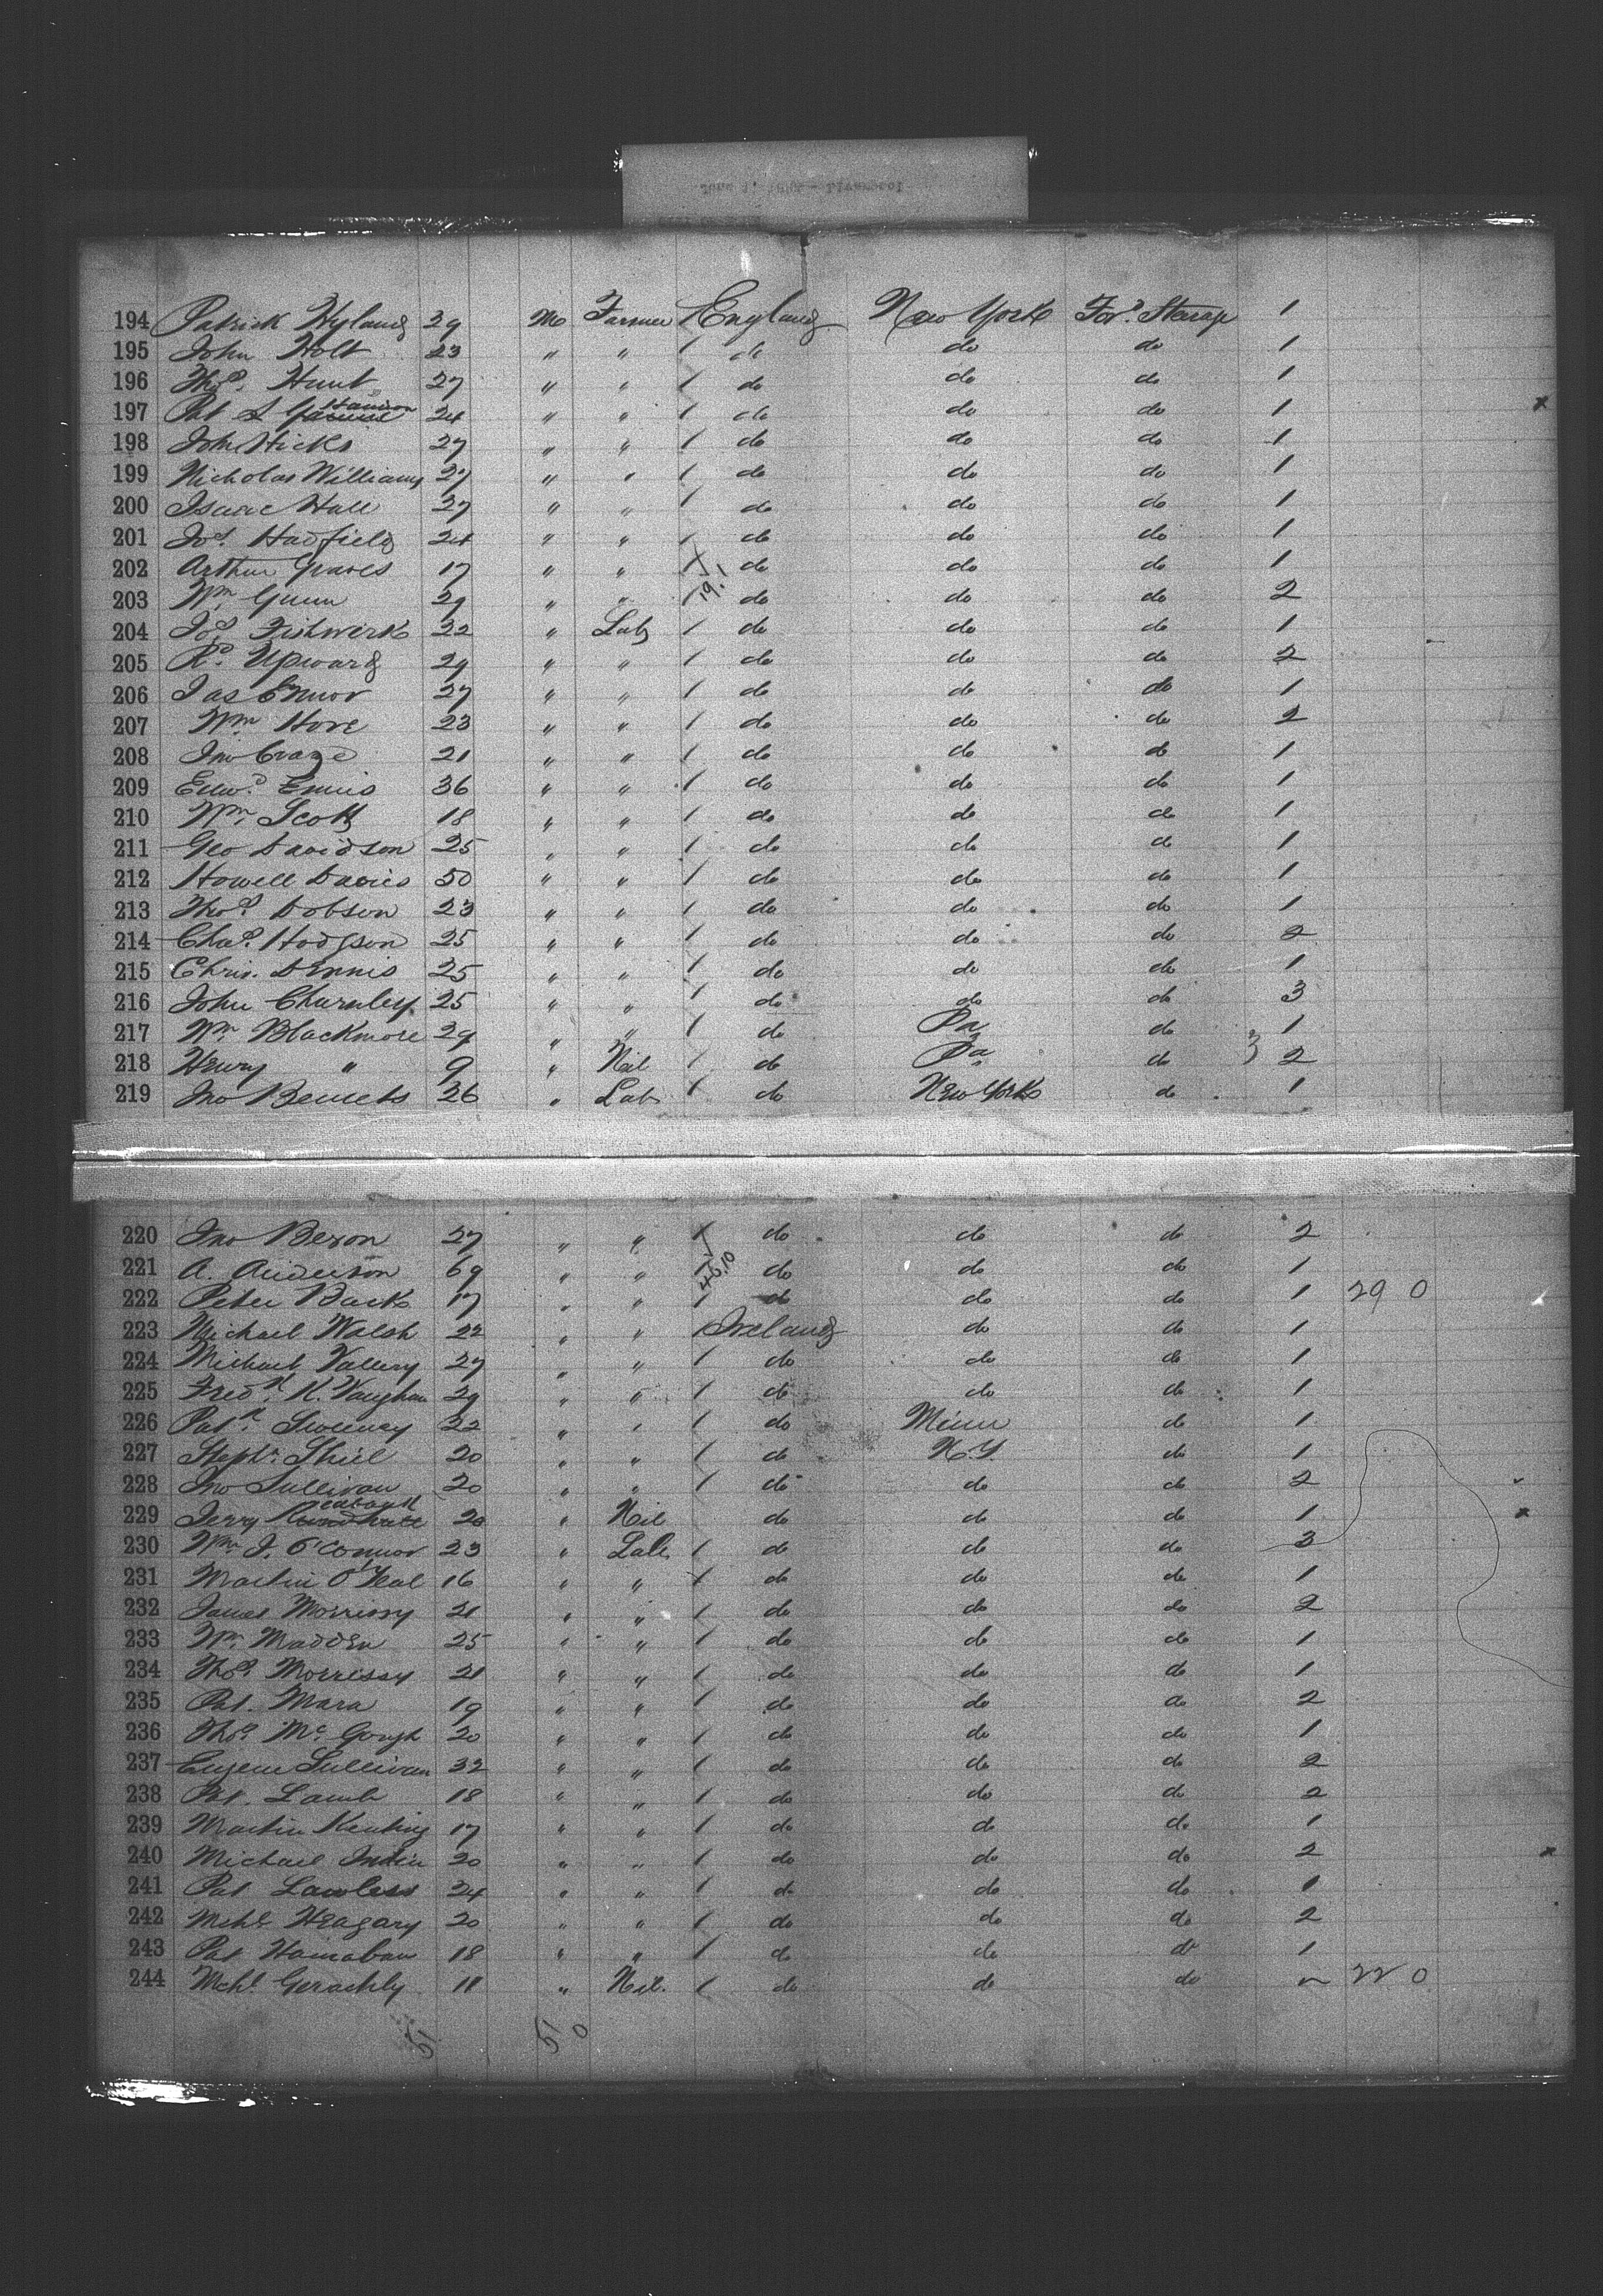 194 Patrick Hyland 29 M Farmer 1 England New York For. Steerage 1
195 John Holt 23 " " 1 do do do 1
196 Thos. Hunt 27 " " 1 do do do 1
197 Pat 24 " " 1 do do do 1 x
198 John Hicks 27 " " 1 do do do 1
199 Nicholas Williams 27 " " 1 do do do 1
200 Isaac Hall 27 " " 1 do do do 1
201 Jos. Hadfield 24 " " 1 do do do 1
202 Arthur Graves 17 " " 1 do do do 1
203 Wm. Gunn 29 " " 1 19.1 do do do 2
204 Jos. Fishwick 22 " Lab 1 do do do 1
205 Rd. Upward 29 " " 1 do do do 2
206 Jas 27 " " 1 do do do 1
207 Wm Hore 23 " " 1 do do do 2
208 Jno Craze 21 " " 1 do do do 1
209 Edwd. Ennis 36 " " 1 do do do 1
210 Wm. Scott 18 " " 1 do do do 1
211 Geo Davidson 25 " " 1 do do do 1
212 Howell Davies 50 " " 1 do do do 1
213 Thos. Dobson 23 " " 1 do do do 1
214 Chas. Hodgson 25 " " 1 do do do 2
215 Chris. Dennis 25 " " 1 do do do 1
216 John Charnley 25 " " 1 do do do 3
217 Wm. Blackmore 29 " " 1 do Pa do 1
218 Henry " 9 " Nil 1 do Pa do 3 2
219 Jno 26 " Lab 1 do New York do 1
220 Jno 27 " " 1 do do do 2
221 A. Anderson 69 " " 1 45.10 do do do 1
222 Peter Back 17 " " 1 do do do 1 29 0
223 Michael Walsh 22 " " 1 Ireland do do 1
224 Michael Vallery 27 " " 1 do do do 1
225 Fredk. K. Vaughan 29 " " 1 do do do 1
226 Patk. Sweeney 22 " " 1 do Minn do 1
227 Stephn. Shiel 20 " " 1 do N.Y. do 1
228 Jno Sullivan 20 " " 1 do do do 2
229 Jerry 20 " Nil do do do 1 x
230 Wm. J. O'Connor 23 " Lab 1 do do do 3
231 Martin O'Neal 16 " " 1 do do do 1
232 James Morrissy 21 " " 1 do do do 2
233 Wm. Madden 25 " " 1 do do do 1
234 Thos. Morrissy 21 " " 1 do do do 1
235 Pat. Mara 19 " " 1 do do do 2
236 Thos. Mc Gough 20 " " 1 do do do 1
237 Eugene Sullivan 32 " " 1 do do do 2
238 Pat. Lamb 18 " " 1 do do do 2
239 Martin Keating 17 " " 1 do do do 1
240 Michael 20 " " 1 do do do 2 x
241 Pat Lawless 24 " " 1 do do do 1
242 Mchl. Heagary 20 " " 1 do do do 2
243 Pat 18 " " 1 do do do 1
244 Mchl. Gerachly 11 " Nil. 1 do do do 22 0
51 51 0